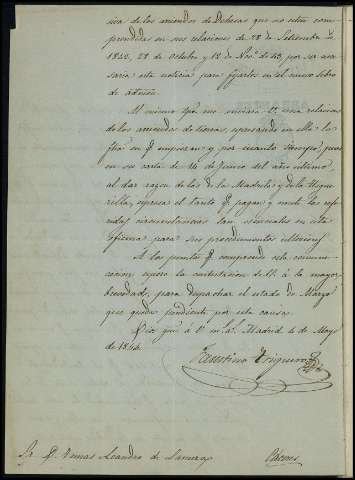 siva de los arriendos de Dehesas que no esten com
prendidas en sus relaciones de 28 de Setiembre de
1842, 28 de Octubre y 12 de Novᵉ de 43, por ser nece
saria esta noticia para fijarlos en el nuevo libro
de
Al mismo tpo. me enviará V. una relacion
de los arriendos de tierras, espresando en ella la
fha en q. empiezan y por cuanto tiempo, pues
en su carta de 14 de Junio del año ultimo,
al dar razon de los de la Madrila y de la Higue
rilla, espresa el tanto q. pagan, y omite las refe
ridas circunstancias tan esenciales en esta
oficina para sus procedimientos ulteriores.
A los puntos q. comprende esta comuni
cacion espero la contestacion de V. á la mayor
brevedad, para despachar el estado de Marzo
que queda pendiente por esta causa.
Dios gue. á V. m. a. Madrid 4 de Mayo
de 1844.
Faustino Trigueros
Sr. D. Tomas Leandro de
Caceres